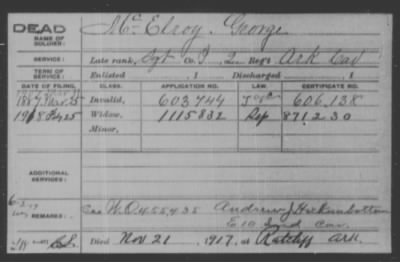 DEAD
NAME OF SOLDIER:
Mc Elroy, George
SERVICE:
Late rank, Sgt Co. I, 2 Reg't Ark Cav
TERM OF SERVICE:
Enlisted , 1 Discharged , 1
DATE OF FILING. CLASS. APPLICATION NO. LAW. CERTIFICATE NO.
1887 Mar 25 Invalid, 603744 606,138
Widow, 1115832 871230
Minor,
ADDITIONAL SERVICES:
REMARKS:
W.O. 455435 Andrew J Hickinbottom
E 10 Cav
Died Nov 21, 1917, at Ratcliff Ark.